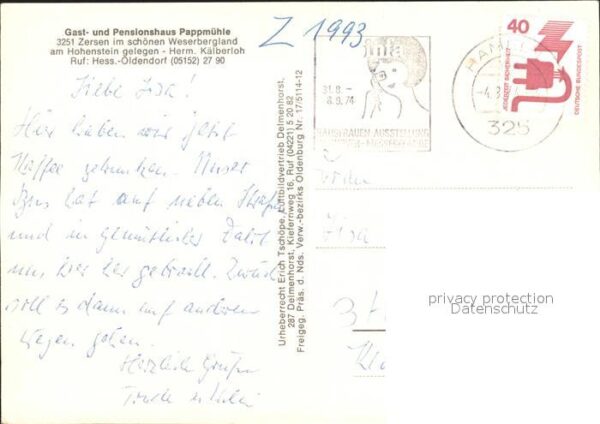 Gast- und Pensionshaus Pappmühle
3251 Zersen im schönen Weserbergland
am Hohenstein gelegen - Herm. Kälberloh
Ruf: Hess.-Oldendorf (05152) 27 90
Z 1993
Liebe Lisa!
Hier haben wir jetzt
Kaffee getrunken. Unser
Bus hat auf neben
und in gemütlicher Fahrt
uns hier her gebracht. Zurück
soll es dann auf anderen
Wegen gehen.
Herzliche Grüße
Urheberrecht Erich Tschöpe, Luftbildvertrieb Delmenhorst,
287 Delmenhorst, Kiefernweg 16, Ruf (04221) 5 20 82
Freigeg. Präs. d. Nds. Verw.-bezirks Oldenburg Nr. 17/5114-12
31.8.-
8.9.74
HAUSFRAUEN AUSSTELLUNG
HAMELN
325
40
JEDERZEIT SICHERHEIT
DEUTSCHE BUNDESPOST
privacy protection
Datenschutz